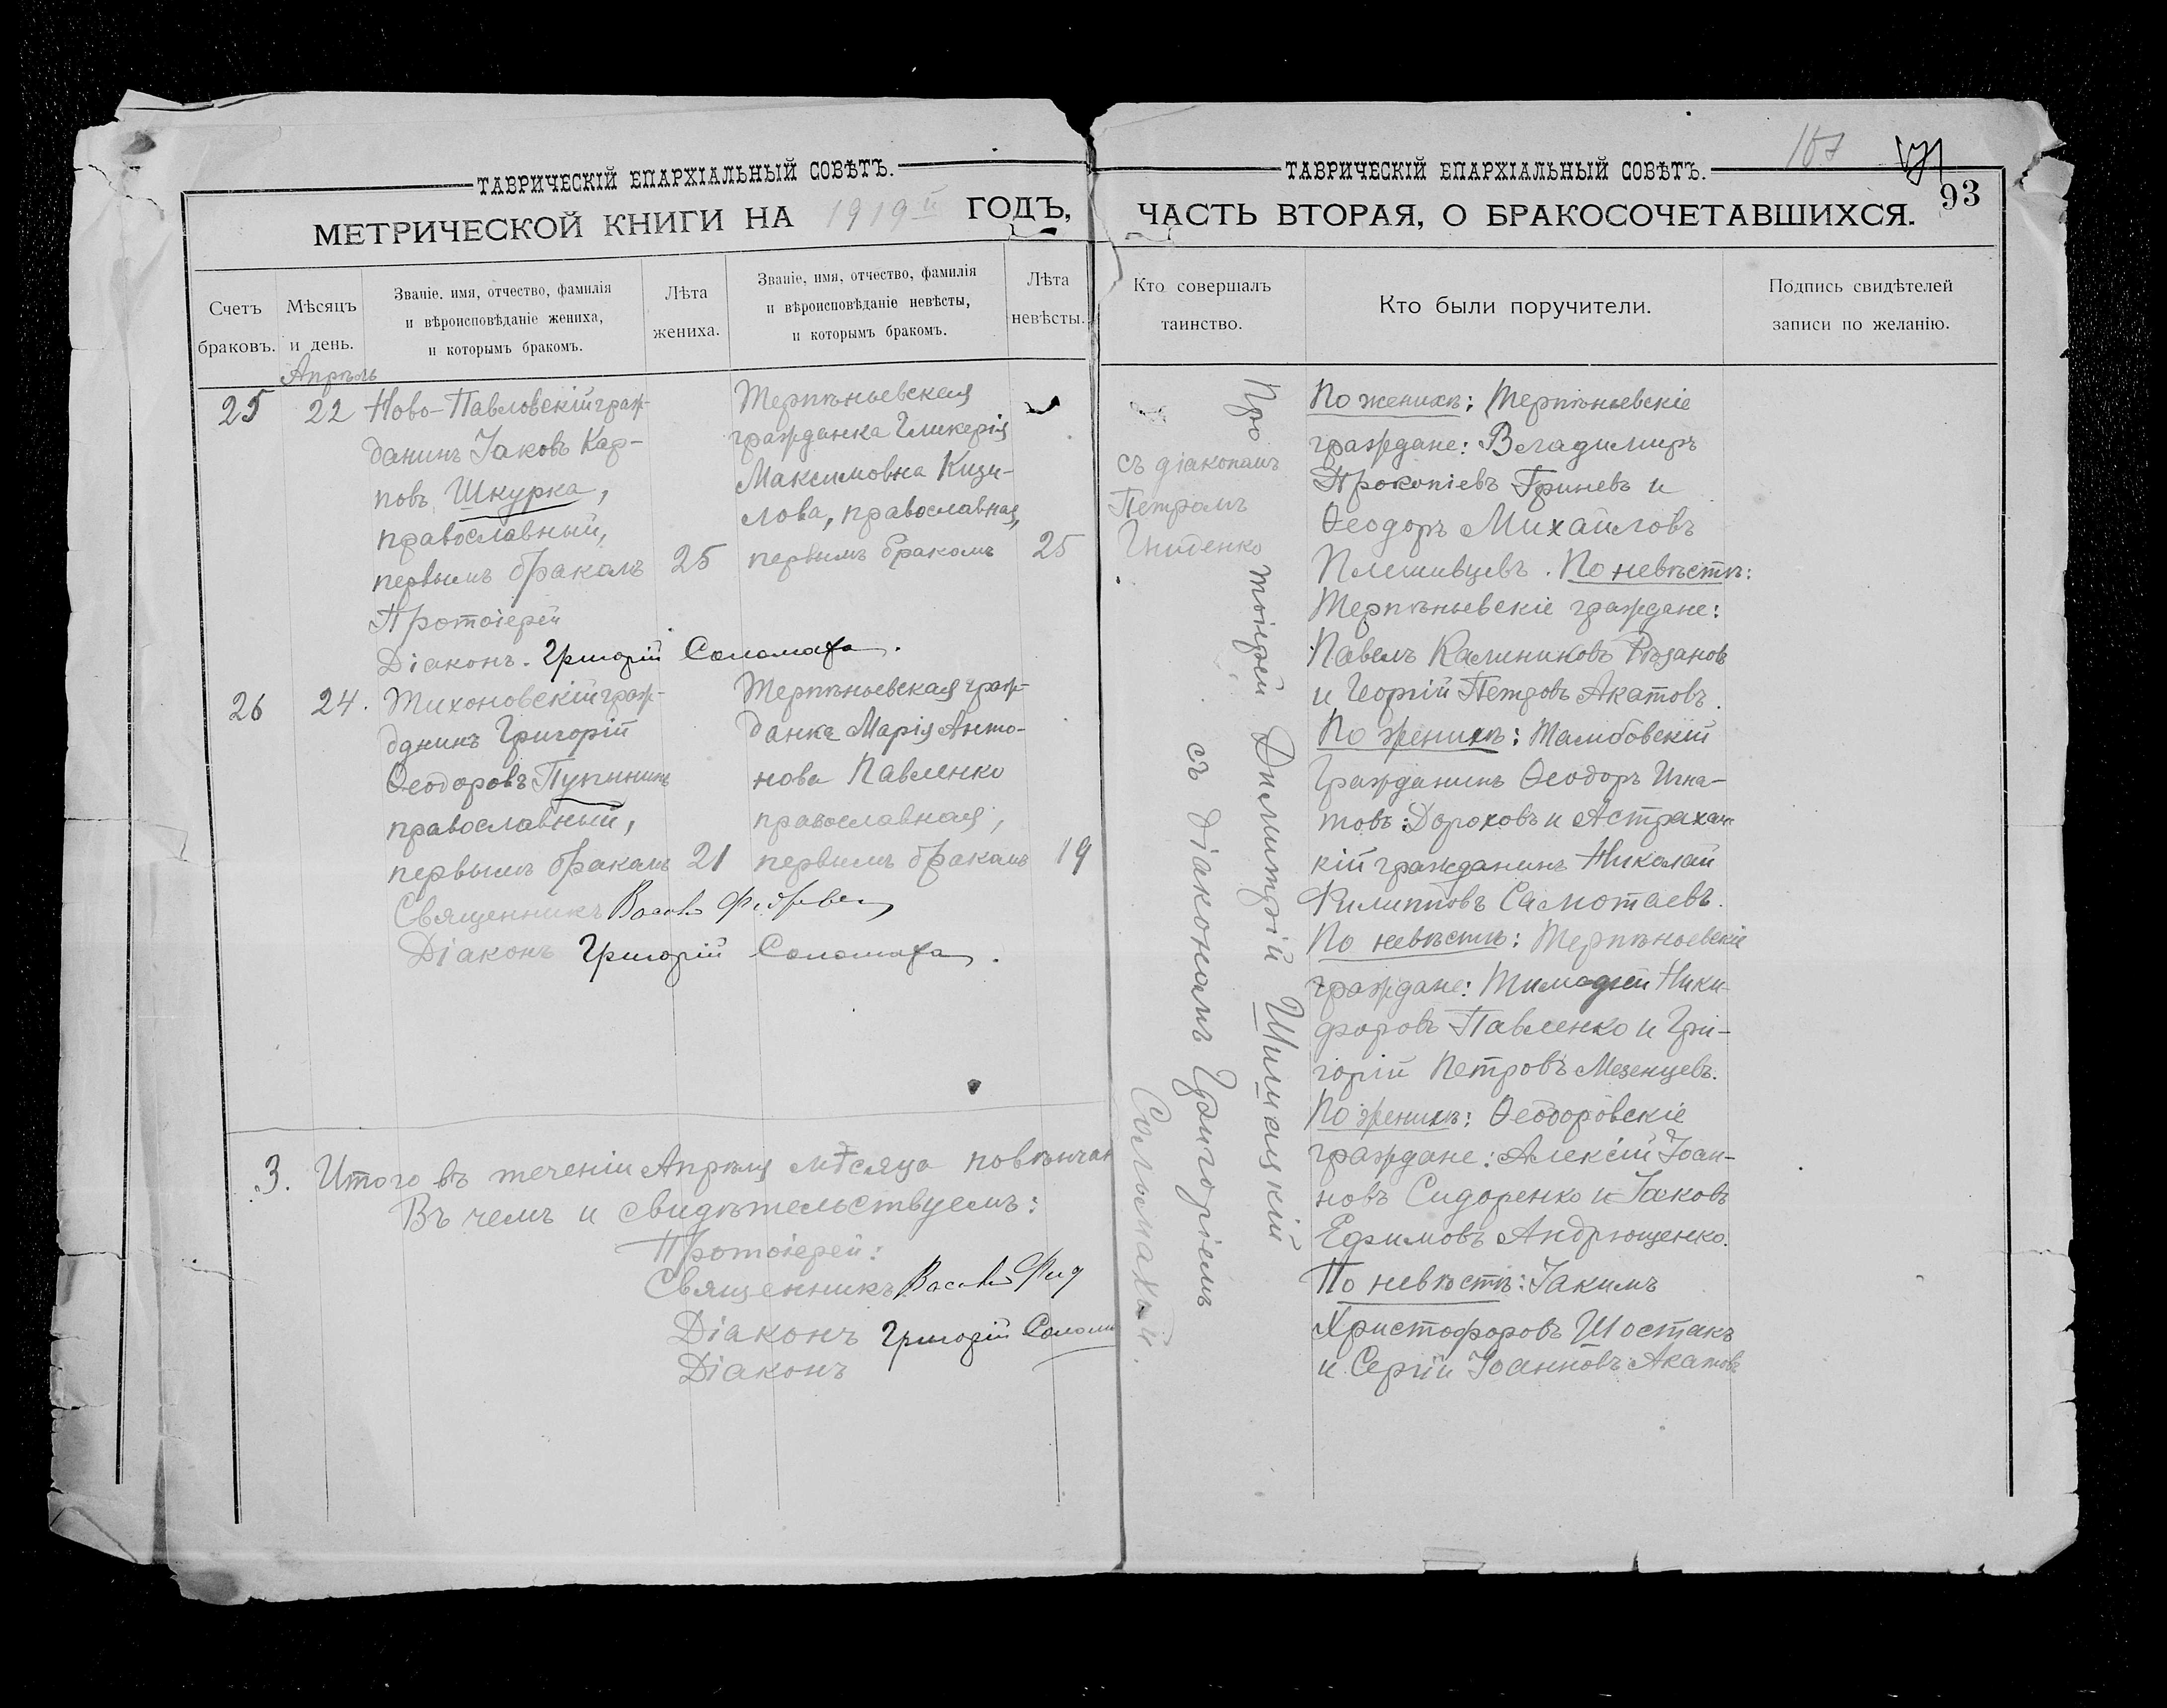 ТАВРИЧЕСКІЙ ЕПАРХІАЛЬНЫЙ СОВѢТЪ.
МЕТРИЧЕСКОЙ КНИГИ НА 1919й ГОДЪ,
Счетъ браковъ.
Мѣсяцъ и день.
Званіе, имя, отчество, фамилія
и вѣроисповѣданіе жениха,
и которымъ бракомъ.
Лѣта жениха.
Званіе, имя, отчество, фамилія
и вѣроисповѣданіе невѣсты,
и которымъ бракомъ.
Лѣта невѣсты.
Апрѣль
25
22
Ново-Павловскій граж-
данинъ Іаковъ Кар-
повъ Шкурка,
православный,
первымъ бракомъ
25
Протоіерей
Діаконъ. Григорій Соломаха.
Терпѣньевская
гражданка Гликерія
Максимовна Кизи-
лова, православная,
первымъ бракомъ
25
26
24.
Тихоновскій граж-
данинъ Григорій
Ѳеодоровъ Пупынинъ
православный,
первымъ бракомъ
21
Священникъ
Діаконъ Григорій Соломаха.
Терпѣньевская граж-
данка Марія Анто-
нова Павленко
православная,
первымъ бракомъ
19
3. Итого въ теченіи Апрѣля мѣсяца повѣнчан
Въ чемъ и свидѣтельствуемъ:
Протоіерей:
Священникъ
Діаконъ Григорій Солом
Діаконъ
ТАВРИЧЕСКІЙ ЕПАРХІАЛЬНЫЙ СОВѢТЪ.
93
ЧАСТЬ ВТОРАЯ, О БРАКОСОЧЕТАВШИХСЯ.
Кто совершалъ
таинство.
Кто были поручители.
Подпись свидѣтелей
записи по желанію.
съ діакономъ
Петромъ
Гниденко
Протоіерей Димитрій
съ діакономъ Григоріемъ
Соломахой.
По женихѣ: Терпѣньевскіе
граждане: Владимиръ
Прокопіевъ Гриневъ и
Ѳеодоръ Михаиловъ
Плешивцевъ. По невѣстѣ:
Терпѣньевскіе граждане:
Павелъ Калиниковъ Рѣзановъ
и Георгій Петровъ Акатовъ.
По женихѣ: Тамбовскій
гражданинъ Ѳеодоръ Игна-
товъ Дороховъ и Астрахан
кій гражданинъ Николай
Филипповъ Самотаевъ.
По невѣстѣ: Терпѣньевскіе
граждане: Тимофей Ники-
форовъ Павленко и Гри-
горій Петровъ Мезенцевъ.
По женихѣ: Ѳеодоровскіе
граждане: Алексій Іоан-
новъ Сидоренко и Іаковъ
Ефимовъ Андрющенко.
По невѣстѣ: Іакимъ
Христофоровъ Шостакъ
и Сергій Іоанновъ Акатовъ